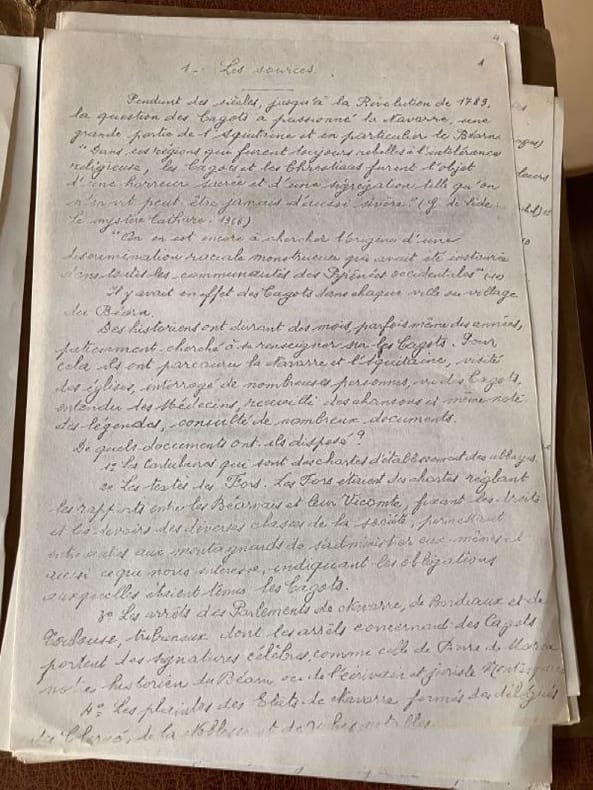 1
1 - Les sources.
Pendant des siècles, jusqu'à la Révolution de 1789,
la question des Cagots a passionné la Navarre, une
grande partie de l'Aquitaine et en particulier le Béarn.
"Dans ces régions qui furent toujours rebelles à l'intolérance
religieuse, les Cagots et les Chrestiaas furent l'objet
d'une horreur sacrée et d'une ségrégation telle qu'on
n'en vit peut être jamais d'aussi sévère." (G. de Sède.
le mystère Cathare. 1966)
"On en est encore à chercher l'origine d'une
discrimination raciale monstrueuse qui avait été instaurée
dans toutes les communautés des Pyrénées occidentales"
Il y avait en effet des Cagots dans chaque ville ou village
du Béarn.
Des historiens ont durant des mois, parfois même des années,
patiemment cherché à se renseigner sur les Cagots. Pour
cela ils ont parcouru la Navarre et l'Aquitaine, visité
des églises, interrogé de nombreuses personnes, vu des Cagots,
entendu des Médecins, recueilli des chansons et même noté
des légendes, consulté de nombreux documents.
De quels documents ont-ils disposé ?
1° les Cartulaires qui sont des chartes d'établissement des abbayes.
2° Les textes des Fors. Les Fors étaient des chartes réglant
les rapports entre les Béarnais et leur Vicomte, fixant les droits
et les devoirs des diverses classes de la société, permettant
aux montagnards de s'administrer eux-mêmes et
aussi ce qui nous intéresse, indiquant les obligations
auxquelles étaient tenus les Cagots.
3° Les arrêts des Parlements de Navarre, de Bordeaux et de
Toulouse, tribunaux dont les arrêts concernant des Cagots
portent des signatures célèbres, comme celle de Pierre de Marca
historien du Béarn ou de l'écrivain et juriste Montesquieu
4° Les plaintes des Etats de Navarre formés des délégués
du Clergé, de la Noblesse et de riches notables